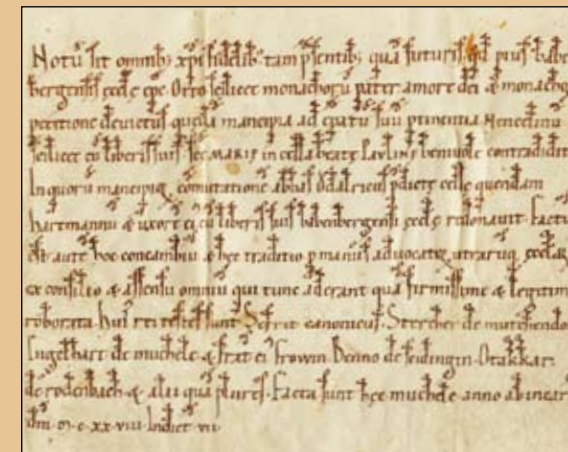 Notū sit omnib; xpi fidelib; tam psentib; quā futuris qd pius babe
bergensis eccłe epc Otto scilicet monachorū pater amore dei & monachoꝝ
petitione devictus quedā mancipia ad epatū suū ptinentia Mencelinū
scilicet cū liberis suis sce MARIE in cella beate PAVLINE benivole contradidit
In quorū mancipioꝝ comutatione abbas Odalricus pdicte celle quendam
hartmannū & uxorē ei cū liberis suis babenbergensi eccłe redonavit. Factū
est autē hoc concambiū & hec traditio p manus advocatoꝝ utrarūq; eccłaꝝ
ex consilio & assensu omniū qui tunc aderant quā firmissime & legitim
roborata. hui rei testes sunt Sefrit canonicus. Stercher de
Engelhart de muchele & frat ei Frowin. Benno de seidingin. Otakkar.
de rodenbach & alii quā plures. Facta sunt hec muchele anno ab incar
dni. m. c. xx. viii. Indict. vii.